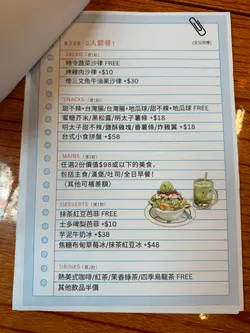 $328-2人套餐!
(全日供應)
SALAD (選1款)
時令蔬菜沙律 FREE
烤雞肉沙律 +$10
煙三文魚牛油果沙律 +$30
SNACKS (選1款)
甜不辣+台灣腸/台灣腸+地瓜球/甜不辣+地瓜球 FREE
蜜糖芥末/黑松露/明太子薯條 +$18
明太子甜不辣/鹽酥雞塊/番薯條/炸雞翼 +$18
台式小食拼盤 +$58
MAINS
任選2份價值$98或以下的美食,
包括主食/漢堡/吐司/全日早餐!
(其他可補差額)
DESSERTS (選1款)
抹茶紅豆芭菲 FREE
士多啤梨芭菲 +$10
芋泥牛奶冰 +$38
焦糖布甸草莓冰/抹茶紅豆冰 +$48
DRINKS (選2款)
熱美式咖啡/紅茶/茉香綠茶/四季烏龍茶 FREE
其他飲品半價